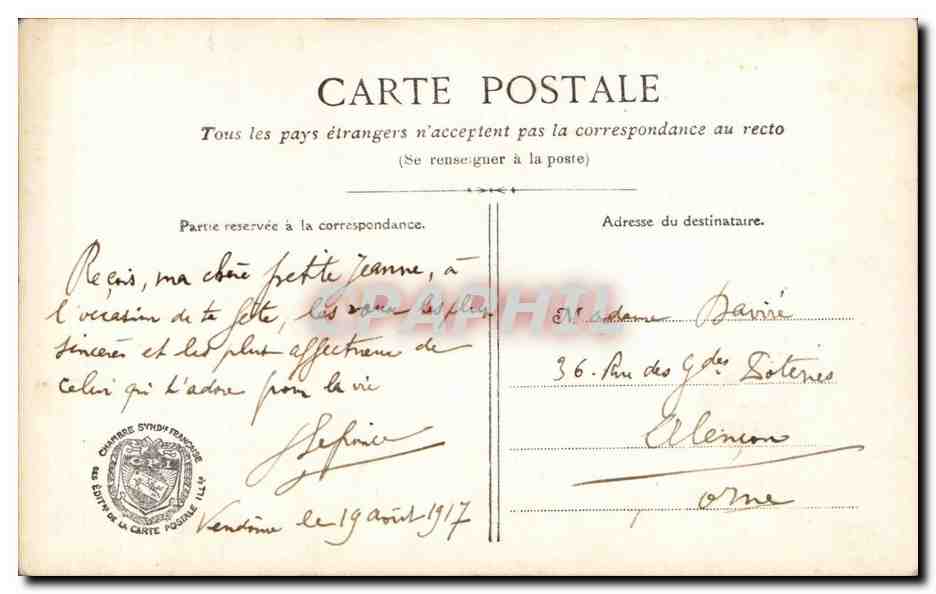 CARTE POSTALE
Tous les pays étrangers n'acceptent pas la correspondance au recto
(Se renseigner à la poste)
Partie reservée à la correspondance.
Adresse du destinataire.
Reçois, ma chère petite Jeanne, à
l'occasion de ta fête, les vœux les plus
sincères et les plus affectueux de
celui qui t'adore pour la vie
Vendôme le 19 août 1917
Madame
36. Rue des Gdes Poteries
Alençon
Orne
CHAMBRE SYND^le FRANÇAISE
DES ÉDIT^rs DE LA CARTE POSTALE ILL^ée
CPAPHIL